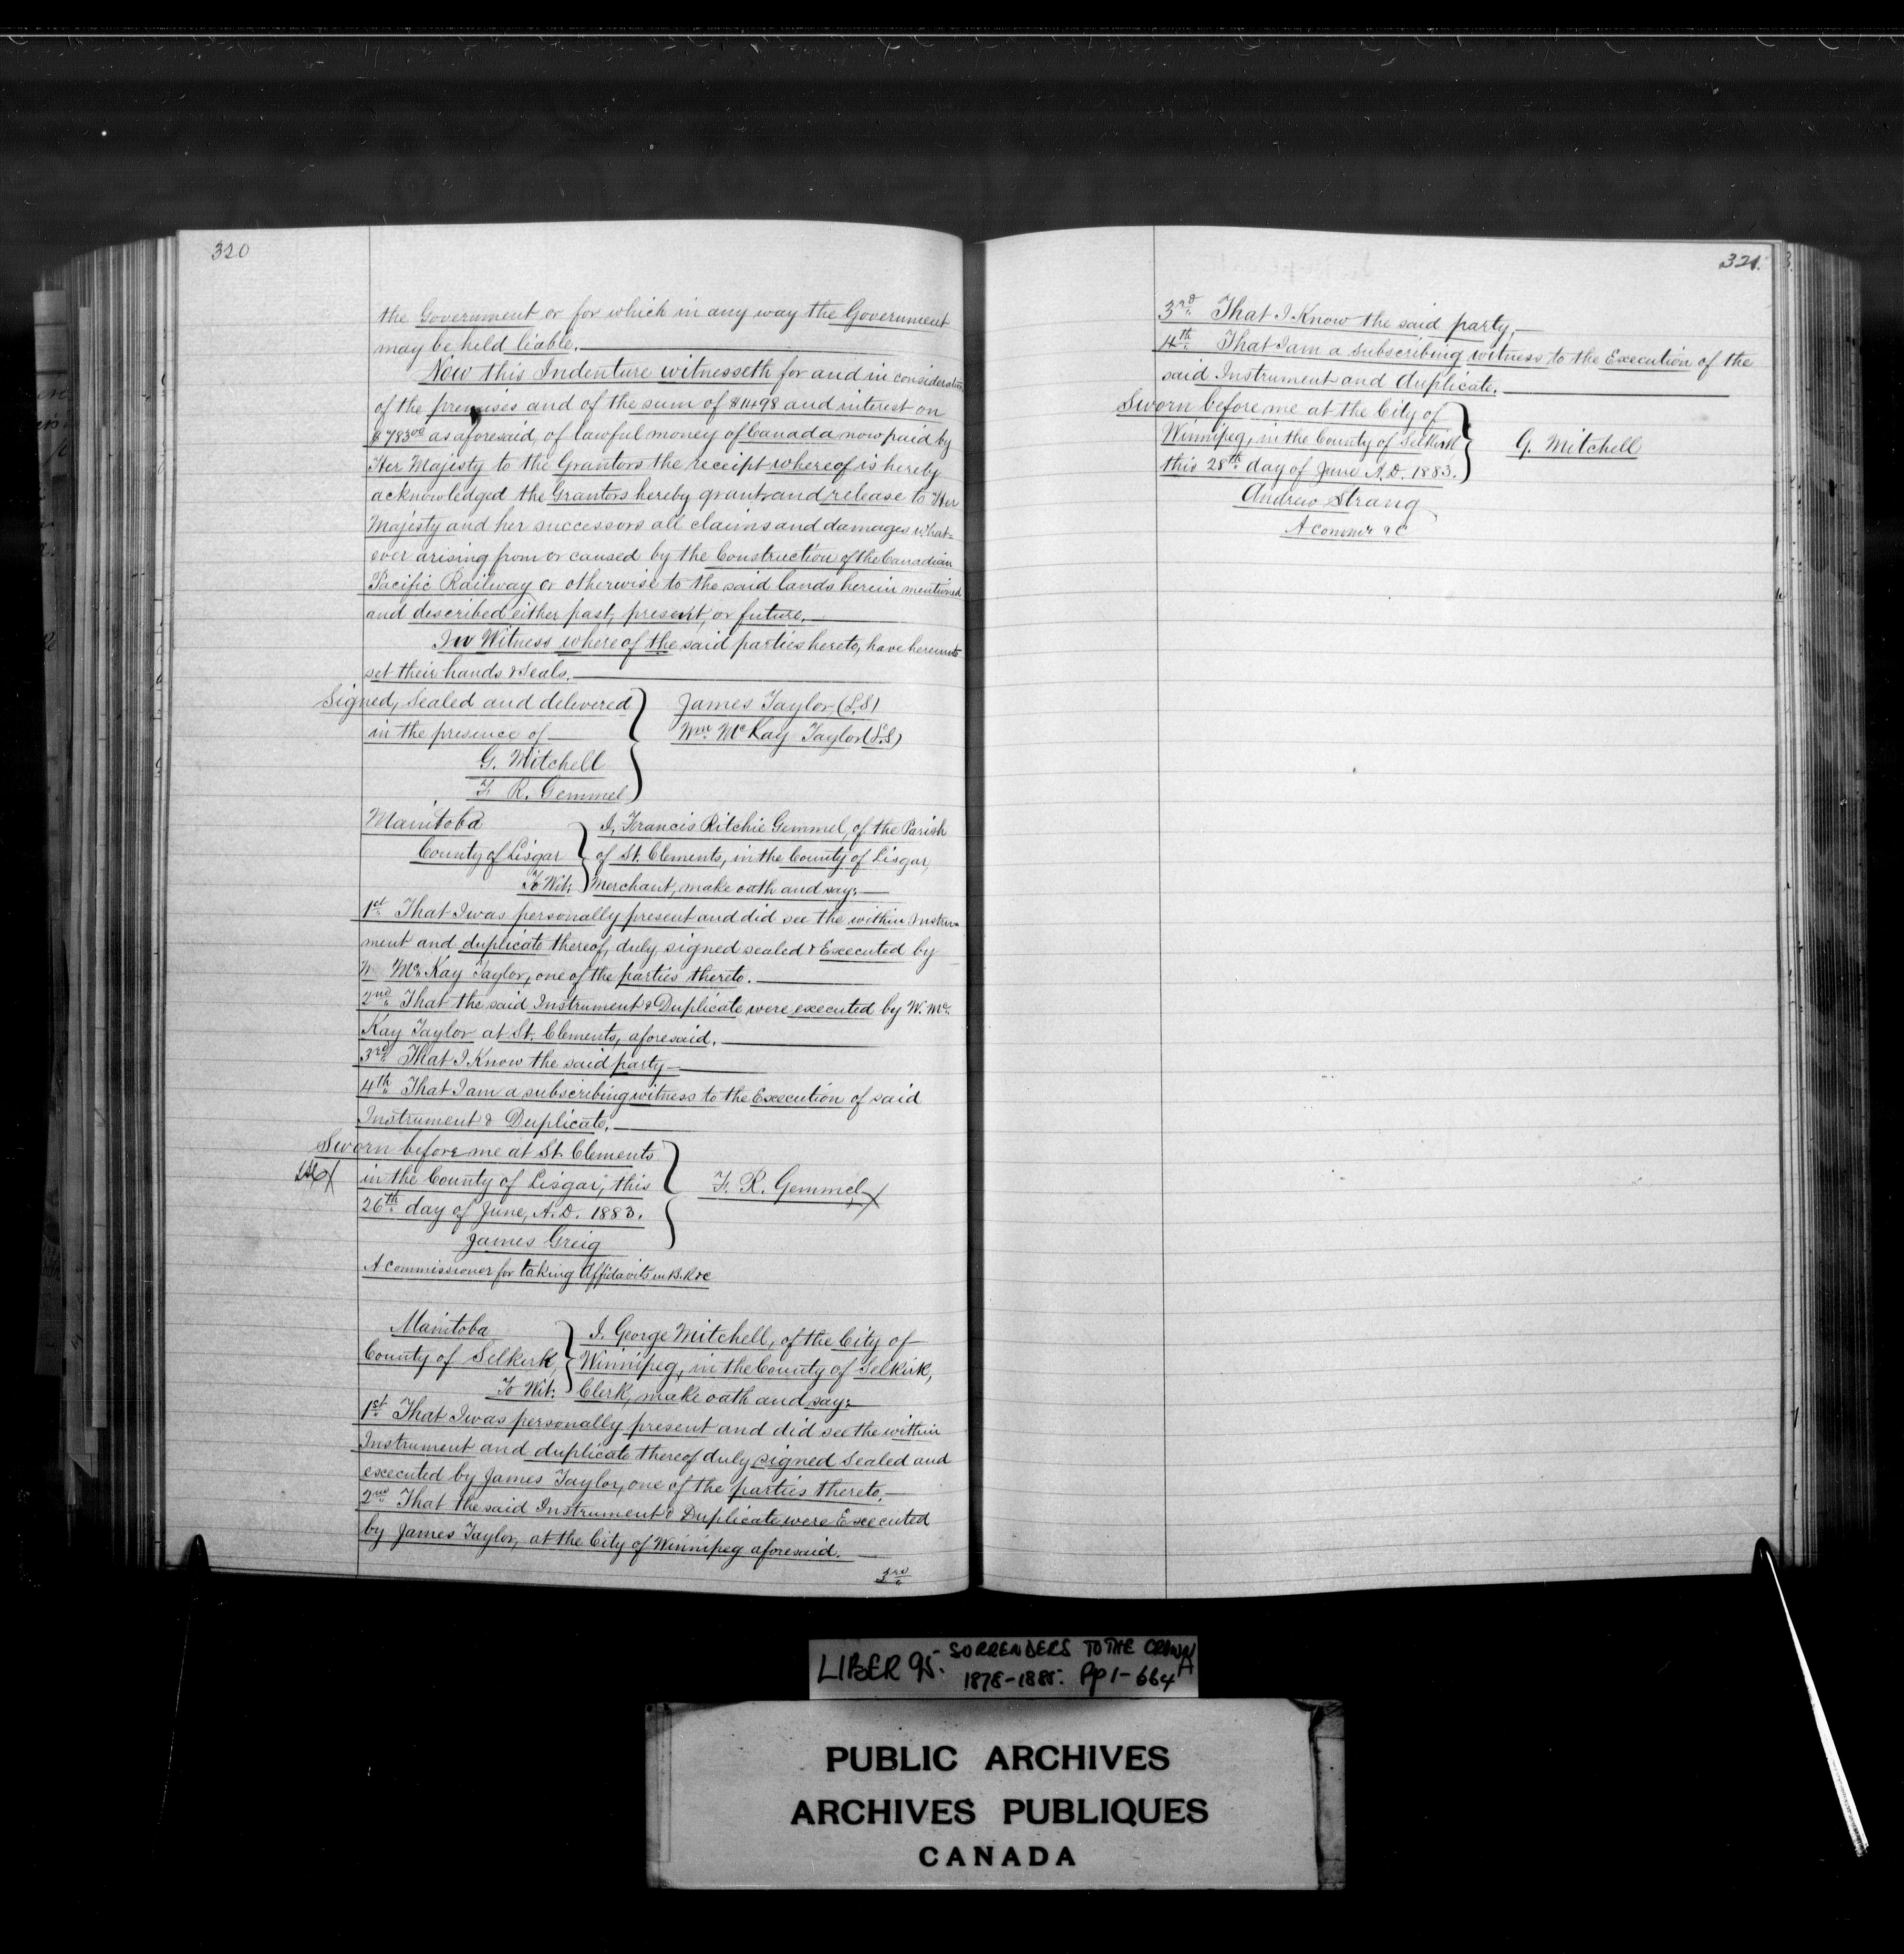 320
the Government or for which in any way the Government
may be held liable.
Now this Indenture witnesseth for and in consideration
of the premises and of the sum of $1498 and interest on
$783.00 as aforesaid, of lawful money of Canada now paid by
Her Majesty to the Grantors the receipt whereof is hereby
acknowledged the Grantors hereby grant and release to Her
Majesty and her successors all claims and damages what=
ever arising from or caused by the Construction of the Canadian
Pacific Railway or otherwise to the said lands herein mentioned
and described either past, present, or future.
In Witness whereof the said parties hereto, have hereunto
set their hands & Seals.
Signed, Sealed and delivered
in the presence of
G. Mitchell
F. R. Gemmel
James Taylor (L.S)
Wm. McKay Taylor (L.S)
Manitoba
County of Lisgar
To Wit:
I, Francis Ritchie Gemmel, of the Parish
of St. Clements, in the County of Lisgar,
Merchant, make oath and say:
1st. That I was personally present and did see the within Instru-
ment and duplicate thereof, duly signed sealed & Executed by
W. McKay Taylor, one of the parties thereto.
2nd. That the said Instrument & Duplicate were executed by W. Mc.
Kay Taylor at St. Clements, aforesaid.
3rd. That I Know the said party
4th. That I am a subscribing witness to the Execution of said
Instrument & Duplicate.
Sworn before me at St. Clements
in the County of Lisgar, this
26th. day of June, A.D. 1883.
James Greig
A Commissioner for taking Affidavits in B.R &c
F. R. Gemmel
Manitoba
County of Selkirk
To Wit:
I, George Mitchell, of the City of
Winnipeg, in the County of Selkirk,
Clerk, make oath and say:
1st. That I was personally present and did see the within
Instrument and duplicate thereof duly signed Sealed and
executed by James Taylor, one of the parties thereto.
2nd. That the said Instrument & Duplicate were Executed
by James Taylor, at the City of Winnipeg aforesaid.
3rd.
321.
3rd. That I Know the said party,
4th. That I am a Subscribing witness to the Execution of the
said Instrument and duplicate.
Sworn before me at the City of
Winnipeg, in the County of Selkirk
this 28th. day of June A.D. 1883.
G. Mitchell
Andrew Strang
A Commr &c
LIBER 95. SORRENDERS TO THE CROWN
1878-1885. Pp 1-664A
PUBLIC ARCHIVES
ARCHIVES PUBLIQUES
CANADA